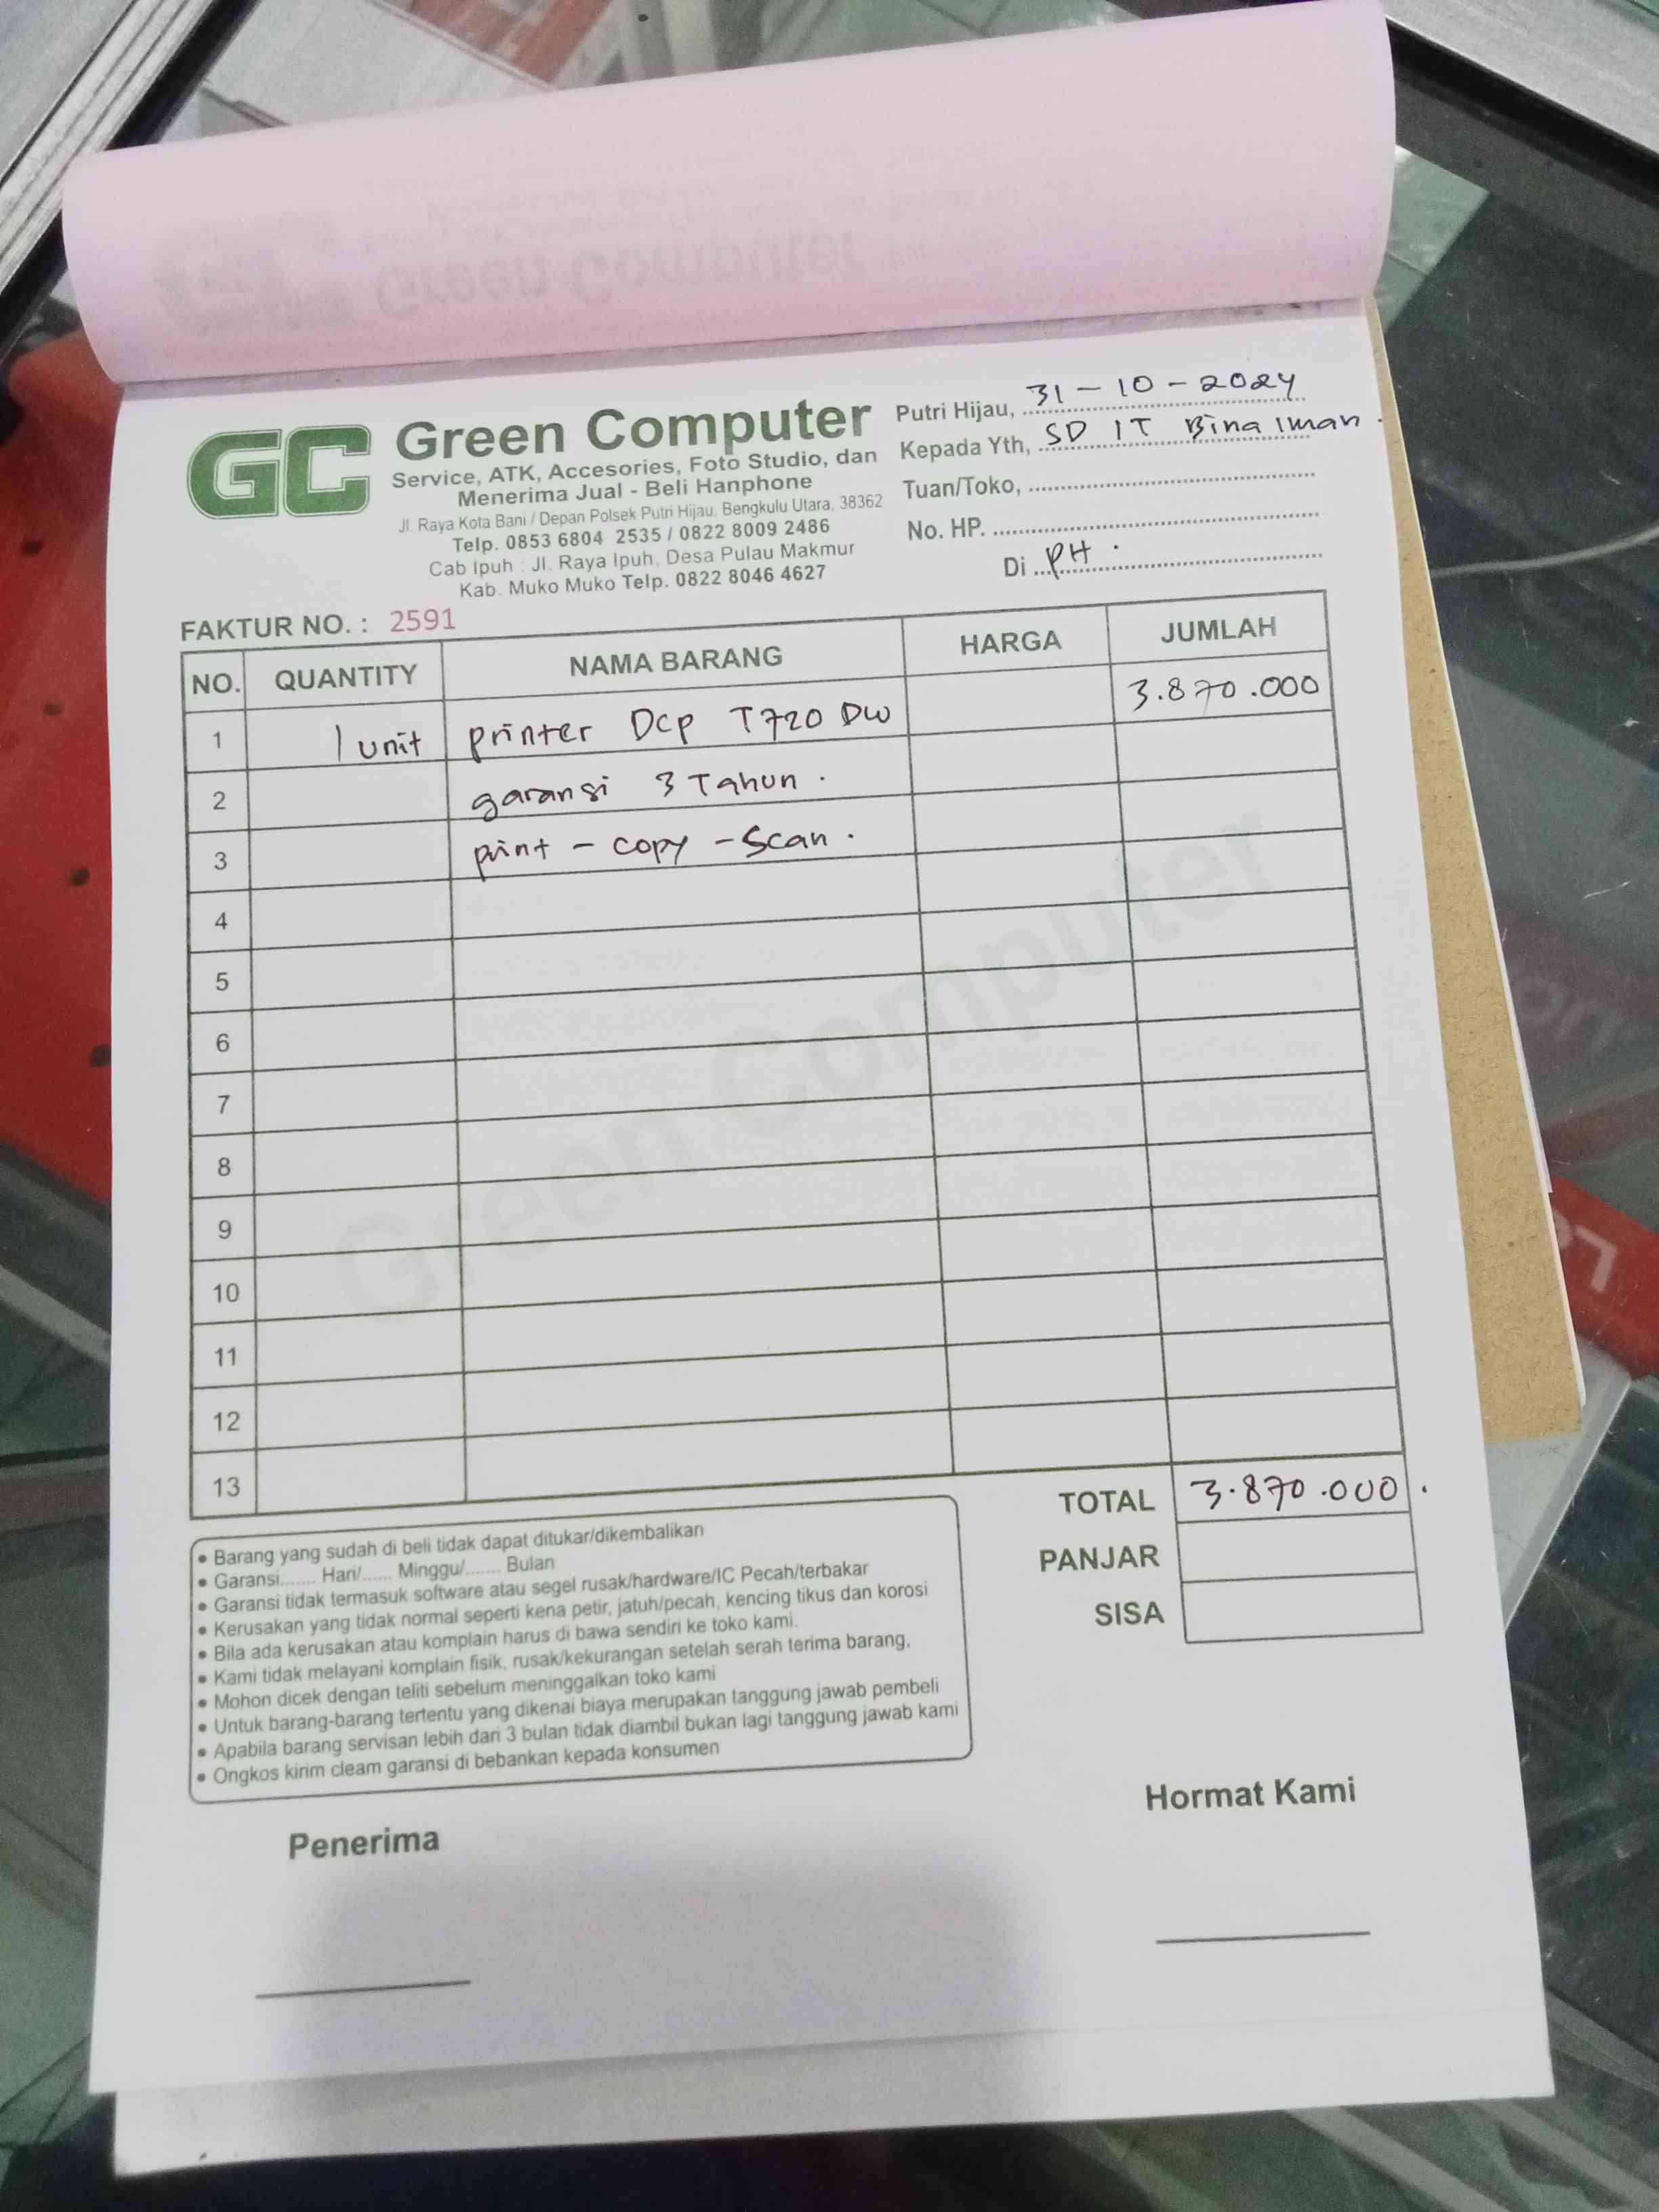 GC
Green Computer
Service, ATK, Accesories, Foto Studio, dan
Menerima Jual - Beli Hanphone
Jl. Raya Kota Bani / Depan Polsek Putri Hijau, Bengkulu Utara, 38362
Telp. 0853 6804 2535 / 0822 8009 2486
Cab Ipuh : Jl. Raya Ipuh, Desa Pulau Makmur
Kab. Muko Muko Telp. 0822 8046 4627
Putri Hijau, 31 - 10 - 2024
Kepada Yth, SD IT Bina Iman.
Tuan/Toko, ..........
No. HP. ..........
Di PH.
FAKTUR NO. : 2591
NO. QUANTITY NAMA BARANG HARGA JUMLAH
1 1 unit printer Dcp T720 DW 3.870.000
2 garansi 3 Tahun.
3 print - copy - Scan.
4
5
6
7
8
9
10
11
12
13
Green Computer
TOTAL 3.870.000.
PANJAR
SISA
• Barang yang sudah di beli tidak dapat ditukar/dikembalikan
• Garansi....... Hari/...... Minggu/....... Bulan
• Garansi tidak termasuk software atau segel rusak/hardware/IC Pecah/terbakar
• Kerusakan yang tidak normal seperti kena petir, jatuh/pecah, kencing tikus dan korosi
• Bila ada kerusakan atau komplain harus di bawa sendiri ke toko kami.
• Kami tidak melayani komplain fisik, rusak/kekurangan setelah serah terima barang.
• Mohon dicek dengan teliti sebelum meninggalkan toko kami
• Untuk barang-barang tertentu yang dikenai biaya merupakan tanggung jawab pembeli
• Apabila barang servisan lebih dari 3 bulan tidak diambil bukan lagi tanggung jawab kami
• Ongkos kirim cleam garansi di bebankan kepada konsumen
Penerima
Hormat Kami